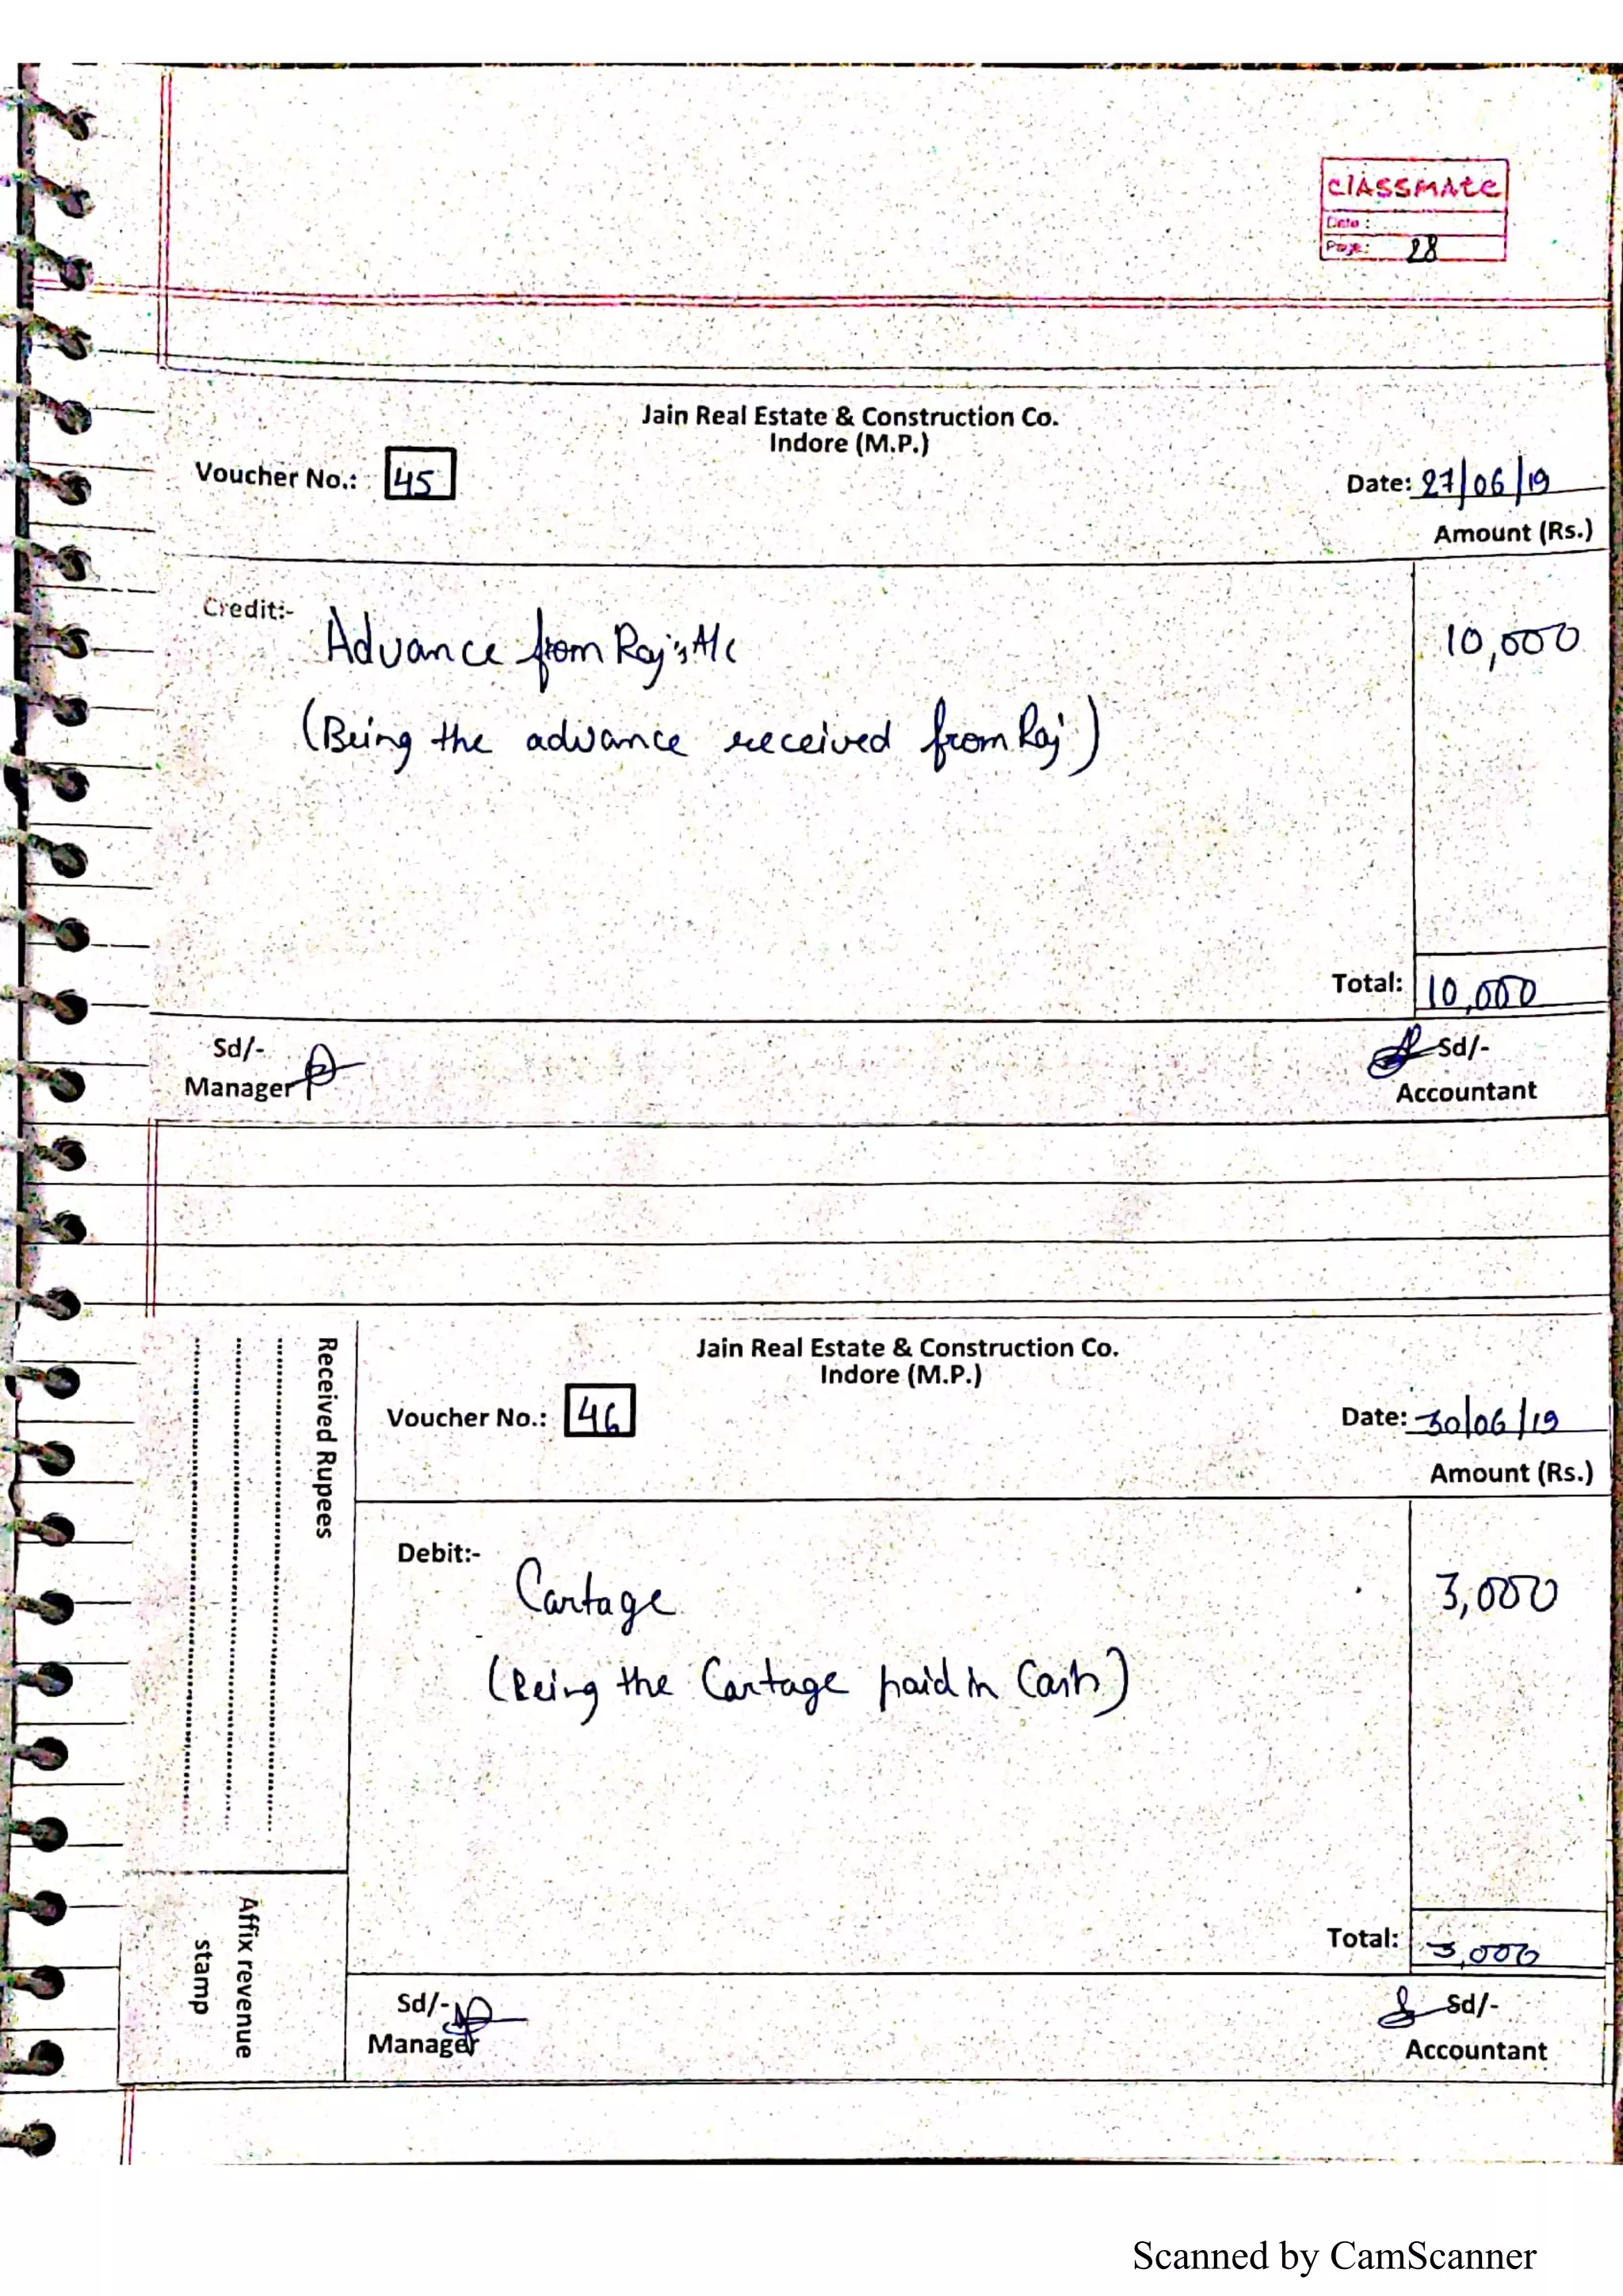 classmate
Date :
Page: 28
Jain Real Estate & Construction Co.
Indore (M.P.)
Voucher No.: 45
Date: 27/06/19
Amount (Rs.)
Credit:-
Advance from Raj's A/c 10,000
(Being the advance received from Raj)
Total: 10,000
Sd/- Sd/-
Manager Accountant
Jain Real Estate & Construction Co.
Indore (M.P.)
Voucher No.: 46
Date: 30/06/19
Amount (Rs.)
Debit:-
Cartage 3,000
(Being the Cartage paid in Cash)
Total: 3,000
Sd/- Sd/-
Manager Accountant
Received Rupees
Affix revenue
stamp
Scanned by CamScanner